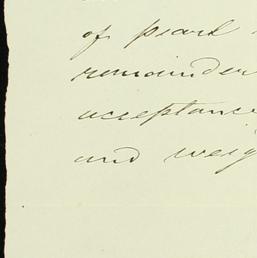 of pearl
remainder
acceptance
and weig